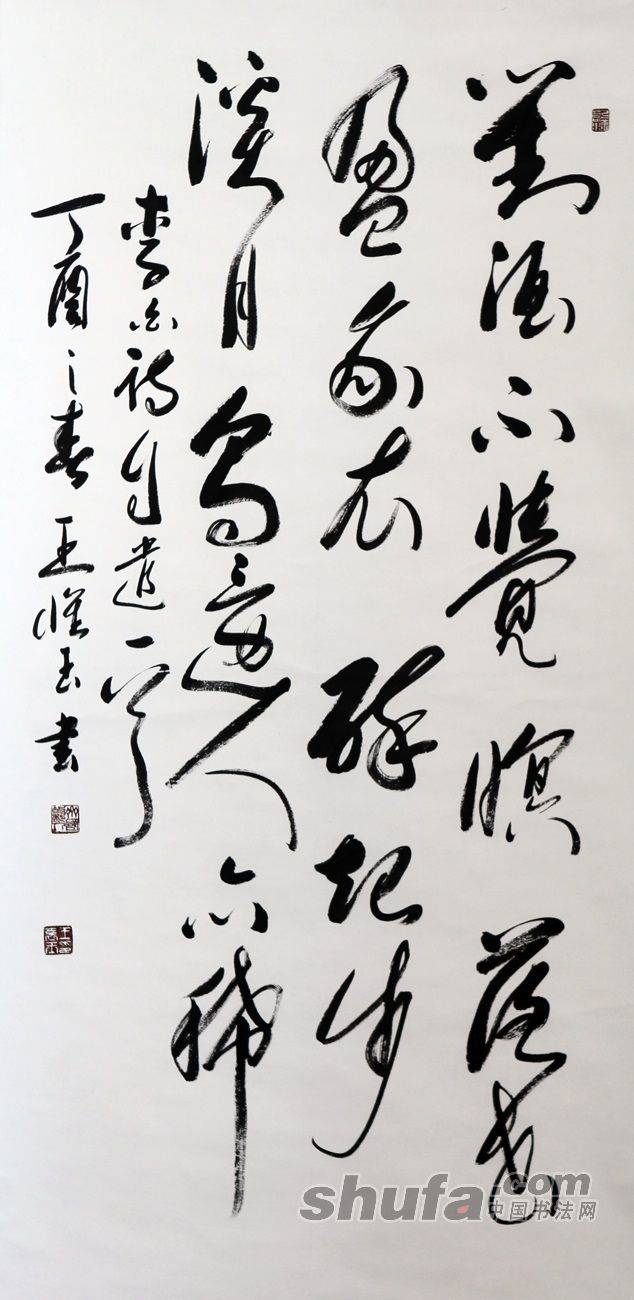 對酒不覺暝落花
盈我衣醉起步
溪月鳥還人亦稀
李白詩自遣一首
丁酉之春王玉書
shufa.com
中国书法网